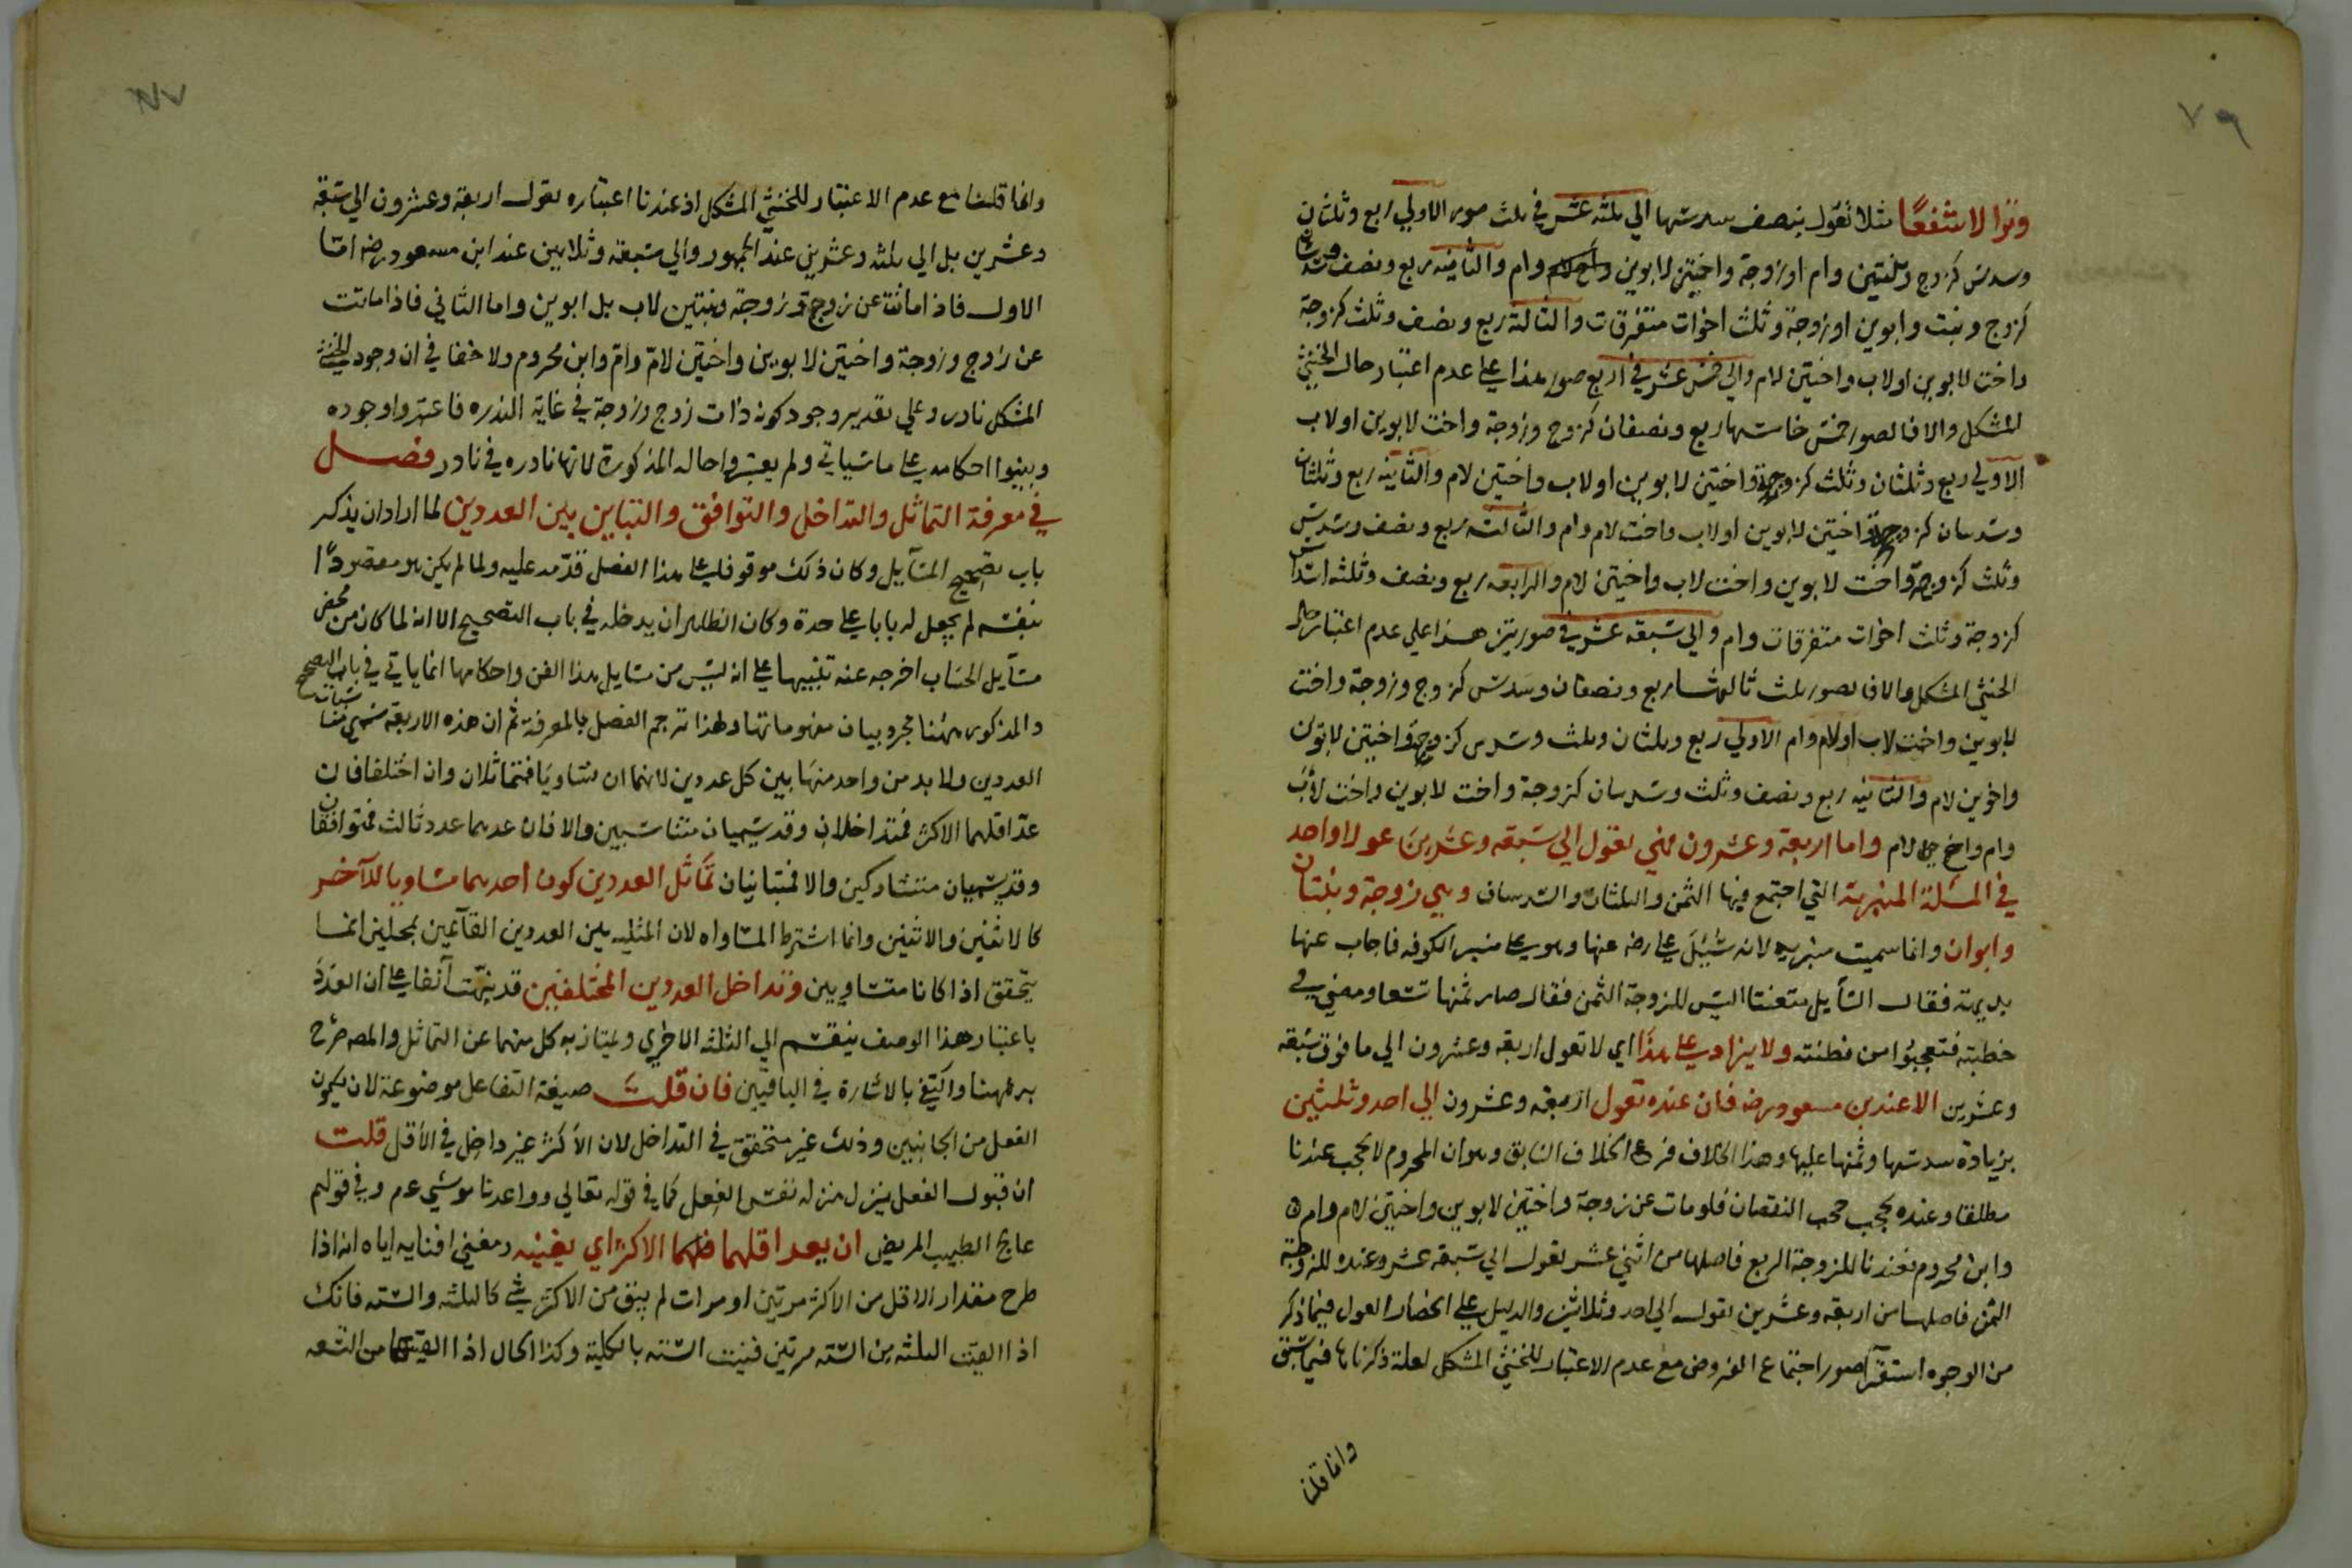 ٧٩
وترا لا شفعًا مثلا تقول بنصف سدسها الي ثلثه عشر في ثلث صور الاولي ربع وثلثان
وسدس كزوج وبنتين وام او زوجة واختين لابوين وام والثانيه ربع ونصف وسدسان
كزوج وبنت وابوين او زوجة وثلث اخوات متفرقات والثالثة ربع ونصف وثلث كزوجة
واخت لابوين اولاب واختين لام والي خمس عشر في اربع صور هذا علي عدم اعتبار حال الخنثي
المشكل والا فالصور خمس خامستها ربع ونصفان كزوج وزوجة واخت لابوين اولاب
الاولي ربع وثلثان وثلث كزوجة واختين لابوين اولاب واختين لام والثانيه ربع وثلثان
وسدسان كزوجة واختين لابوين اولاب واخت لام وام والثالثه ربع ونصف وسدس
وثلث كزوجة واخت لابوين واخت لاب واختين لام والرابعه ربع ونصف وثلثه اسداس
كزوجة وثلث اخوات متفرقات وام والي سبعه عشر في صورتين هذا علي عدم اعتبار حال
الخنثي المشكل والا فالصور ثلث ثالثها ربع ونصفان وسدس كزوج وزوجة واخت
لابوين واخت لاب اولام وام الاولي ربع وثلثان وثلث وسدس كزوجة واختين لابوين
واخوين لام والثانيه ربع ونصف وثلث وسدسان كزوجة واخت لابوين واخت لاب
وام واخ لام واما اربعة وعشرون فهي تقول الي سبعه وعشرين عولا واحد
في المسئلة المنبرية التي اجتمع فيها الثمن والثلثان والسدسان وهي زوجة وبنتان
وابوان وانما سميت منبريه لانه سُئِلَ علي رضه عنها وهو علي منبر الكوفه فاجاب عنها
بديهة فقال السايل متعنتا اليس للزوجة الثمن فقال صار ثمنها تسعا ومضي في
خطبته فتعجبوا من فطنته ولا يزاد علي هذا اي لا تعول اربعه وعشرون الي ما فوق سبعه
وعشرين الا عند بن مسعود رضه فان عنده تعول اربعه وعشرون الي احد وثلثين
بزيادة سدسها وثمنها عليها وهذا الخلاف فرع الخلاف السابق وهو ان المحروم لا يحجب عندنا
مطلقا وعنده يحجب حجب النقصان فلو مات عن زوجة واختين لابوين واختين لام وام
وابن محروم فعندنا للزوجة الربع فاصلها من اثني عشر تعول الي سبعه عشر وعنده للزوجة
الثمن فاصلها من اربعه وعشرين تعول الي احد وثلاثين والدليل علي انحصار العول فيما ذكر
من الوجوه استقرآ صور اجتماع الفروض مع عدم الاعتبار للخنثي المشكل لعلة ذكرناها فيما سبق
وانما قلنا
وانما قلنا مع عدم الاعتبار للخنثي المشكل اذ عندنا اعتباره تعول اربعة وعشرون الي سبعة
وعشرين بل الي ثلثه وعشرين عند الجمهور والي سبعه وثلاثين عند ابن مسعود رضه اما
الاول فاذا ماتت عن زوج وزوجة وبنتين لاب بل ابوين واما الثاني فاذا ماتت
عن زوج وزوجة واختين لابوين واختين لامّ وامّ وابن محروم ولا خفا في ان وجود الخنثي
المشكل نادر وعلي تقدير وجود كونه ذات زوج وزوجة في غاية الندره فاعتبروا وجوده
وبينوا احكامه علي ما سياتي ولم يعتبروا حاله المذكورة لانها نادره في نادر فصل
في معرفة التماثل والتداخل والتوافق والتباين بين العددين لما اراد ان يذكر
باب تصحيح المسآيل وكان ذلك موقوفا علي هذا الفصل قدّمه عليه ولما لم يكن هو مقصودًا
بنفسه لم يجعل له بابا علي حدة وكان الظاهر ان يدخله في باب التصحيح الا انه لما كان من محض
مسآيل الحساب اخرجه عنه تنبيها علي انه ليس من مسايل هذا الفن واحكامها انما ياتي في باب التصحيح
والمذكور ههنا مجرد بيان مفهوماتها ولهذا ترجم الفصل بالمعرفة ثم ان هذه الاربعة
العددين ولا بد من واحد منها بين كل عددين لانهما ان تساويا فتماثلان وان اختلفا فان
عدّ اقلهما الاكثر فمتداخلان وقد يسميان متناسبين والا فان عدهما عدد ثالث فمتوافقان
وقد يسميان متشاركين والا فمتباينان تماثل العددين كون احدهما مساويا للآخر
كالاثنين والاثنين وانما اشترط المساواه لان المثليه بين العددين القآئمين بمحلين انما
يتحقق اذا كانا متساويين وتداخل العددين المختلفين قد نبّهت آنفا علي ان العدد
باعتبار هذا الوصف ينقسم الي الثلثه الاخري ويمتاز به كل منهما عن التماثل والمصه صرّح
به ههنا واكتفي بالاشارة في الباقيين فان قلت صيغة التفاعل موضوعة لان يكون
الفعل من الجانبين وذلك غير متحقق في التداخل لان الاكثر غير داخل في الاقل قلت
ان قبول الفعل ينزل منزله نفس الفعل كما في قوله تعالي وواعدنا موسي عم وفي قولهم
عالج الطبيب المريض ان يعد اقلهما الاكثر اي يفنيه ومعني افنايه اياه انه اذا
طرح مقدار الاقل من الاكثر مرتين او مرات لم يبق من الاكثر شي كالثلثه والسته فانك
اذا القيت الثلثه من السته مرتين فنيت السته بالكلية وكذا الحال اذا القيتها من التسعه